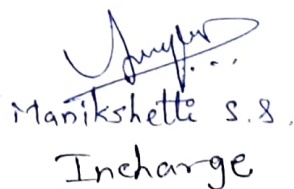 Manikshetti S.S.
Incharge